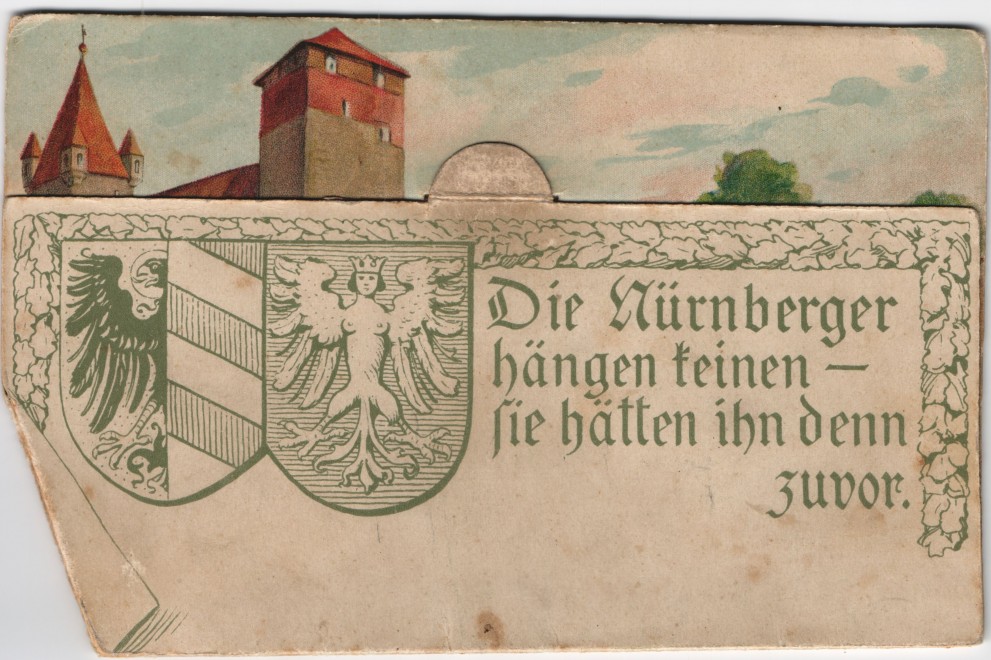 Die Nürnberger
hängen keinen —
sie hätten ihn denn
zuvor.